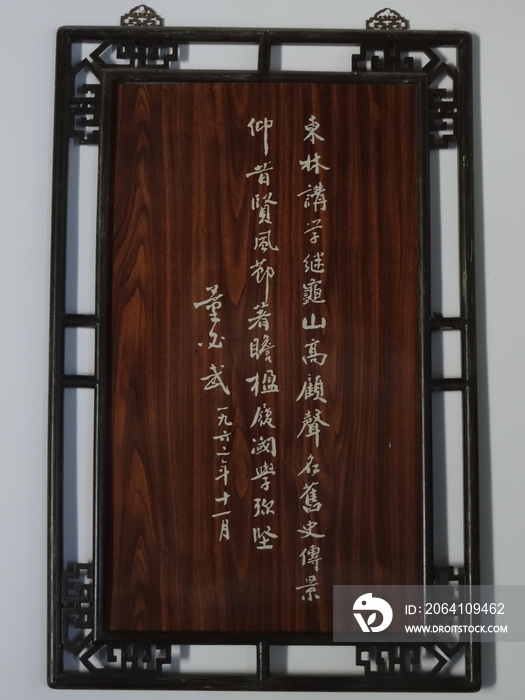 東林講学继龜山高顧聲名舊史傳景
仰昔賢風節著瞻楹履閾學弥坚
董必武
一九六二年十一月
ID: 2064109462
WWW.DROITSTOCK.COM